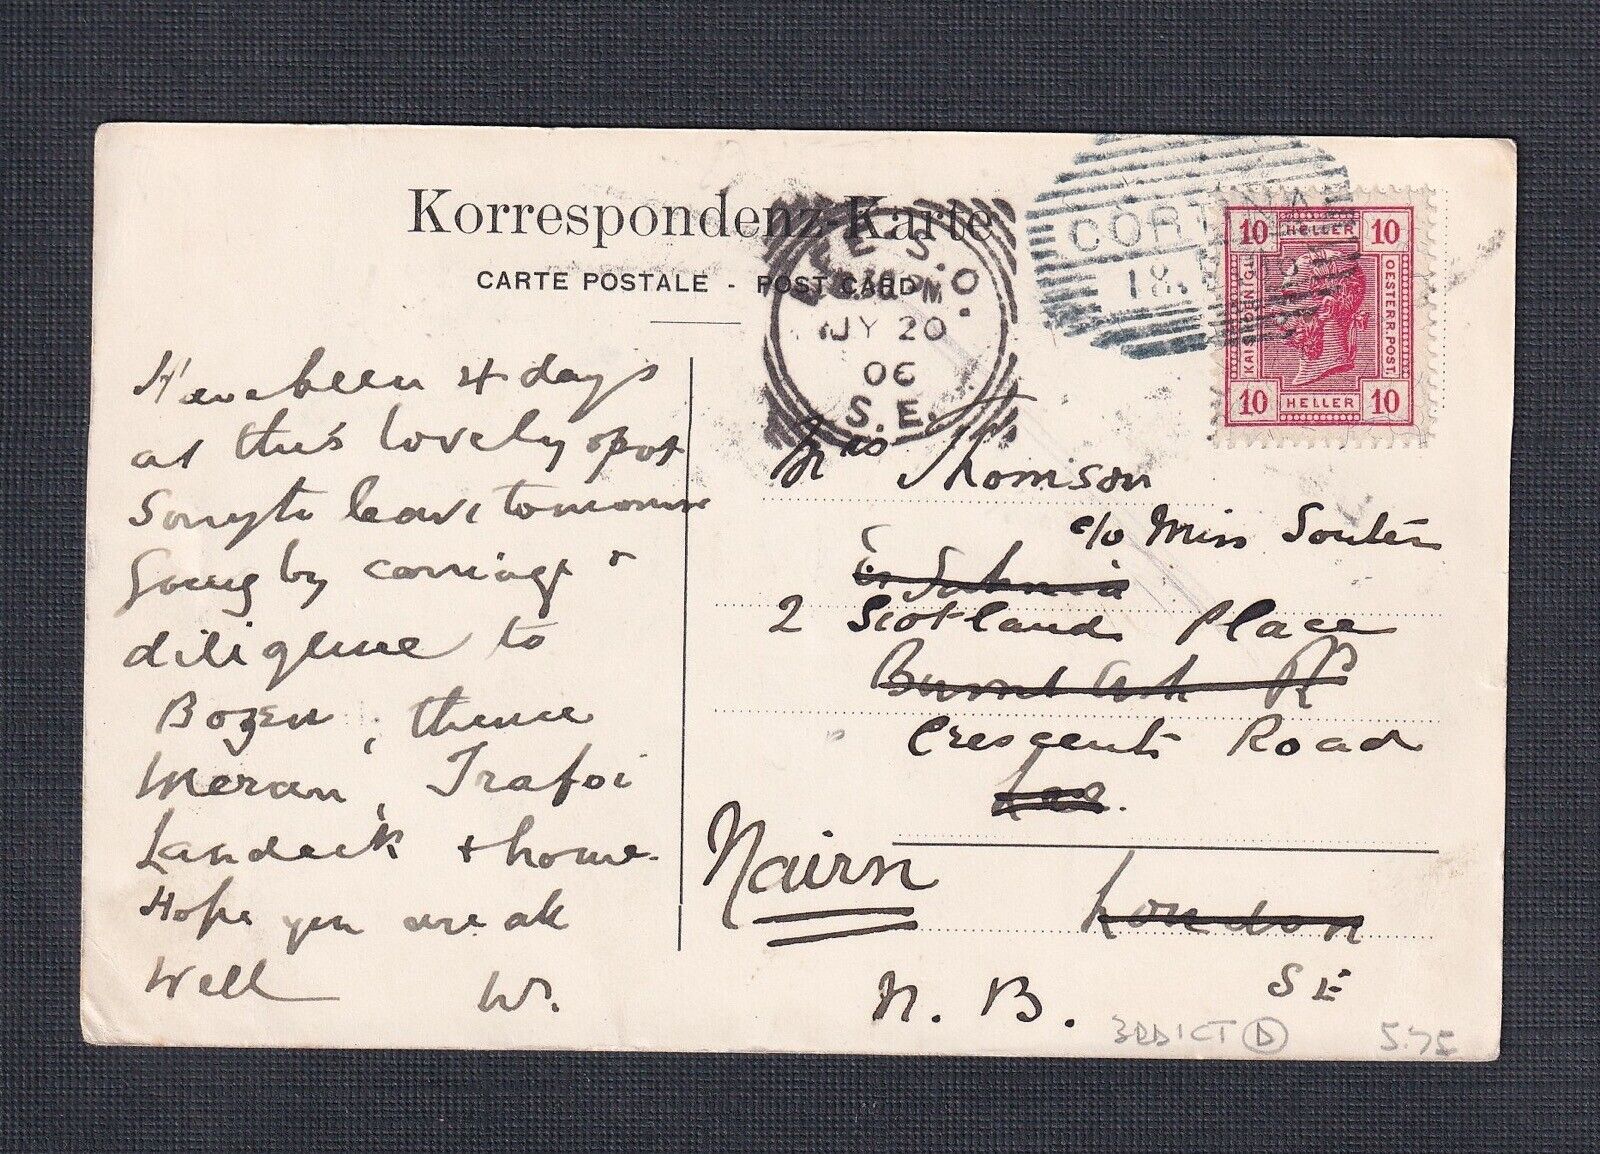 Korrespondenz-Karte
CARTE POSTALE - POST CARD
Have been 4 days
at this lovely spot
Sorry to leave tomorrow
Going by carriage +
diligence to
Bozen, thence
Meran, Trafoi
Landeck + home.
Hope you are all
Well W.
LEE S.O.
JY 20
06
S.E.
CORTINA
18.
10 HELLER 10
KAIS. KÖNIGL.
OESTERR. POST.
10 HELLER 10
Mrs Thomson
c/o Miss Souter
2 Scotland Place
Burnt Ash Rd
Crescent Road
Lee.
Nairn
London
SE
N. B.
5.75